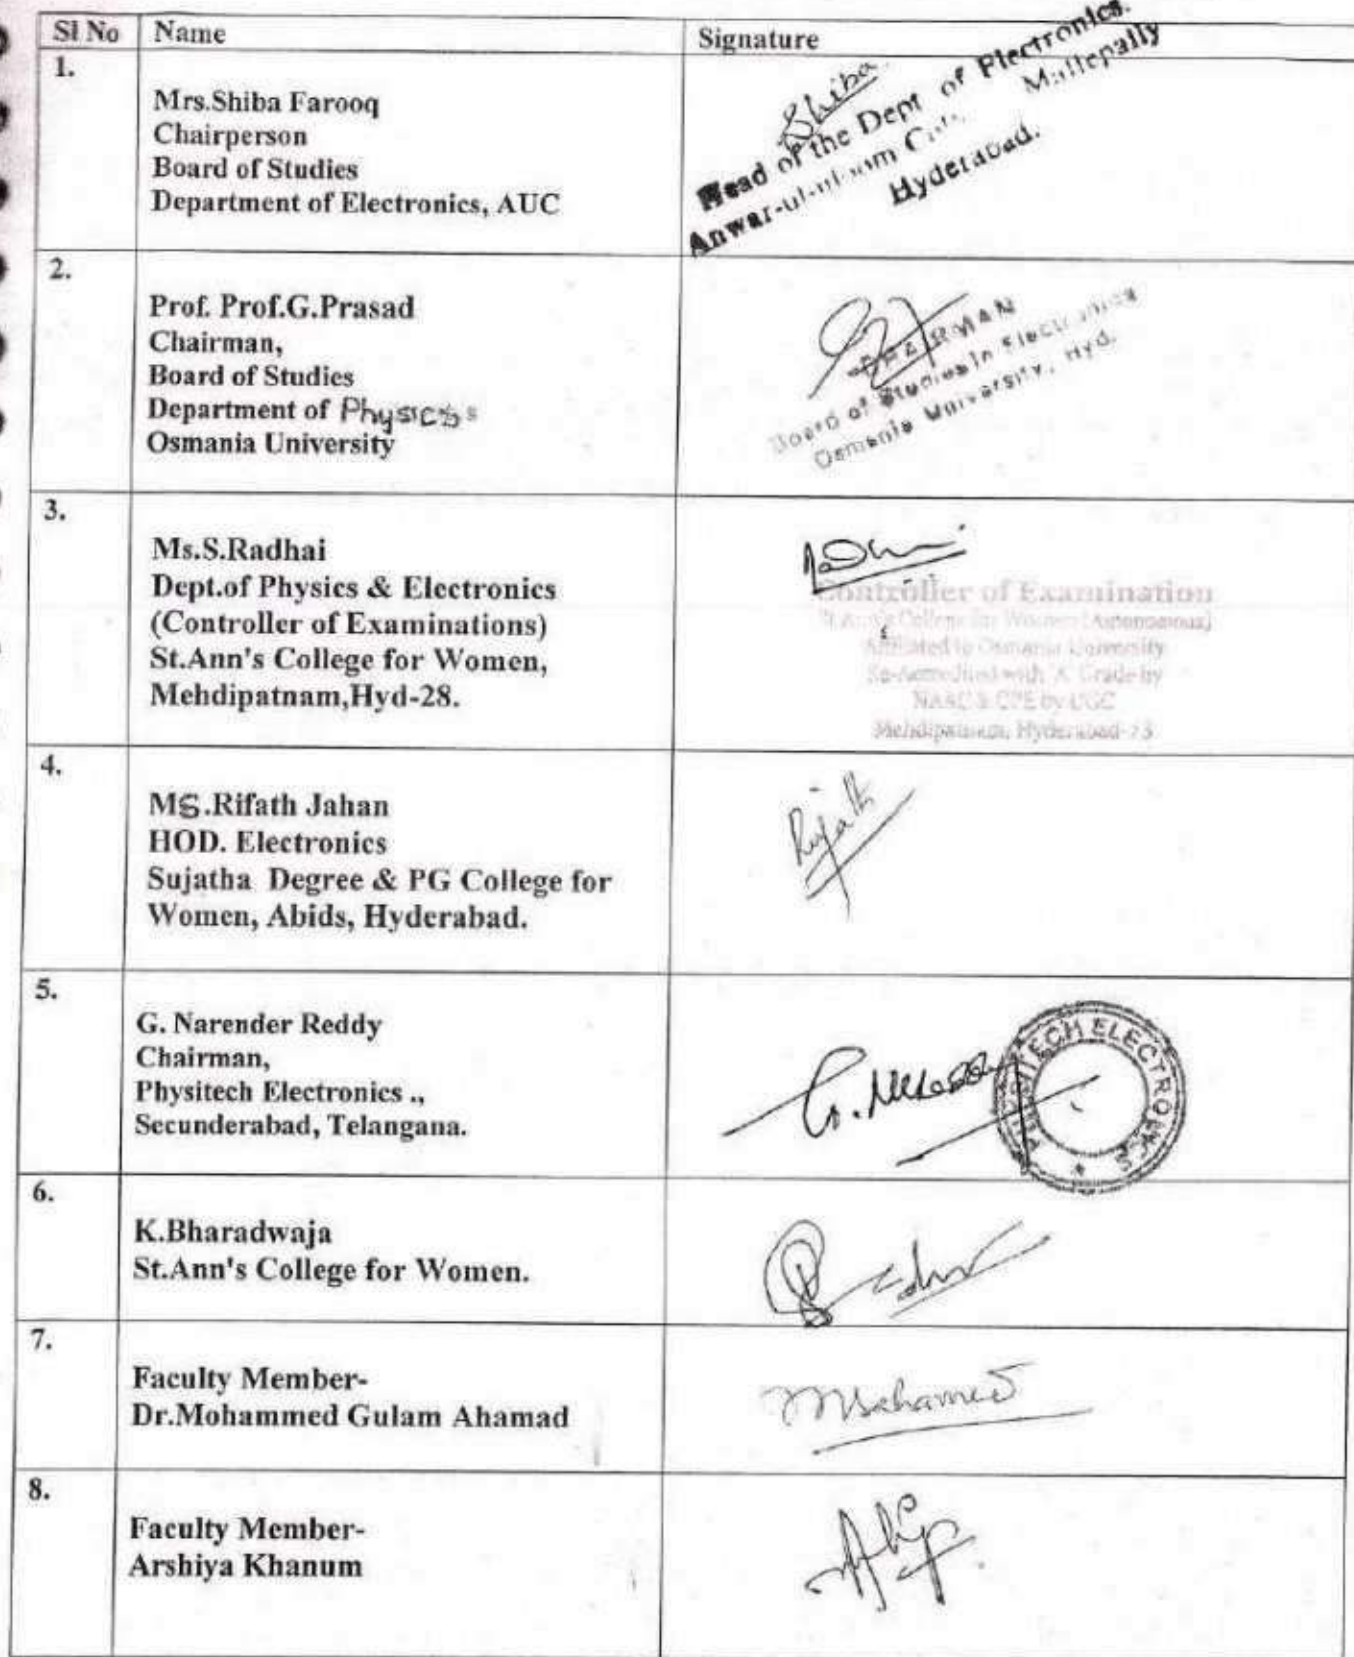 Sl No Name Signature
1.
Mrs.Shiba Farooq
Chairperson
Board of Studies
Department of Electronics, AUC
Shiba
Head of the Dept of Electronics.
Anwar-ul-uloom Mallepally
Hyderabad.
2.
Prof. Prof.G.Prasad
Chairman,
Board of Studies
Department of Physics
Osmania University
CHAIRMAN
Board of Studies in Electronics
Osmania University, Hyd.
3.
Ms.S.Radhai
Dept.of Physics & Electronics
(Controller of Examinations)
St.Ann's College for Women,
Mehdipatnam,Hyd-28.
Controller of Examination
St.Ann's College for Women (Autonomous)
Affiliated to Osmania University
Re-Accredited with 'A' Grade by
NAAC & CPE by UGC
Mehdipatnam, Hyderabad-
4.
MS.Rifath Jahan
HOD. Electronics
Sujatha Degree & PG College for
Women, Abids, Hyderabad.
Rifath
5.
G. Narender Reddy
Chairman,
Physitech Electronics .,
Secunderabad, Telangana.
G.
PHYSITECH ELECTRONICS
6.
K.Bharadwaja
St.Ann's College for Women.
7.
Faculty Member-
Dr.Mohammed Gulam Ahamad
8.
Faculty Member-
Arshiya Khanum